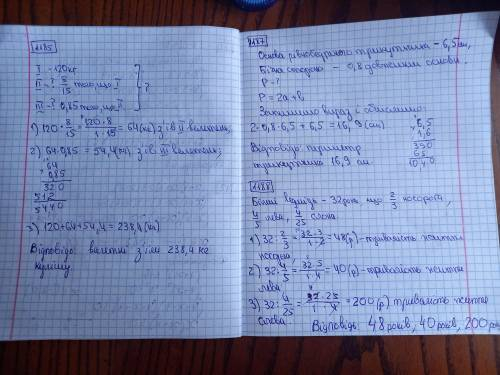 1185
I - 120 кг
II - ? 8/15 того, що I
III - ? 0,85 того, що II
?
1) 120 · 8/15 = 120·8/1·15 = 64 (кг) з'їв II велетень;
2) 64 · 0,85 = 54,4 (кг) з'їв III велетень;
64
0,85
320
512
5440
3) 120+64+54,4 = 238,4 (кг)
Відповідь: велетні з'їли 238,4 кг
1187
Основа рівнобедреного трикутника - 6,5 см,
Бічна сторона - 0,8 довжини основи.
P - ?
P = 2a + b
Запишимо вираз і обчислимо:
2 · 0,8 · 6,5 + 6,5 = 16,9 (см)
6,5
1,6
390
65
10,40
Відповідь: периметр
трикутника 16,9 см.
1188
Білий ведмідь - 32 роки, що 2/3 носорога,
4/5 лева, 4/25 слона.
1) 32 : 2/3 = 32·3/1·2 = 48 (р) - тривалість життя
носорога
2) 32 : 4/5 = 32·5/1·4 = 40 (р) - тривалість життя
лева
3) 32 : 4/25 = 32·25/1·4 = 200 (р) тривалість життя
слона.
Відповідь: 48 років, 40 років, 200